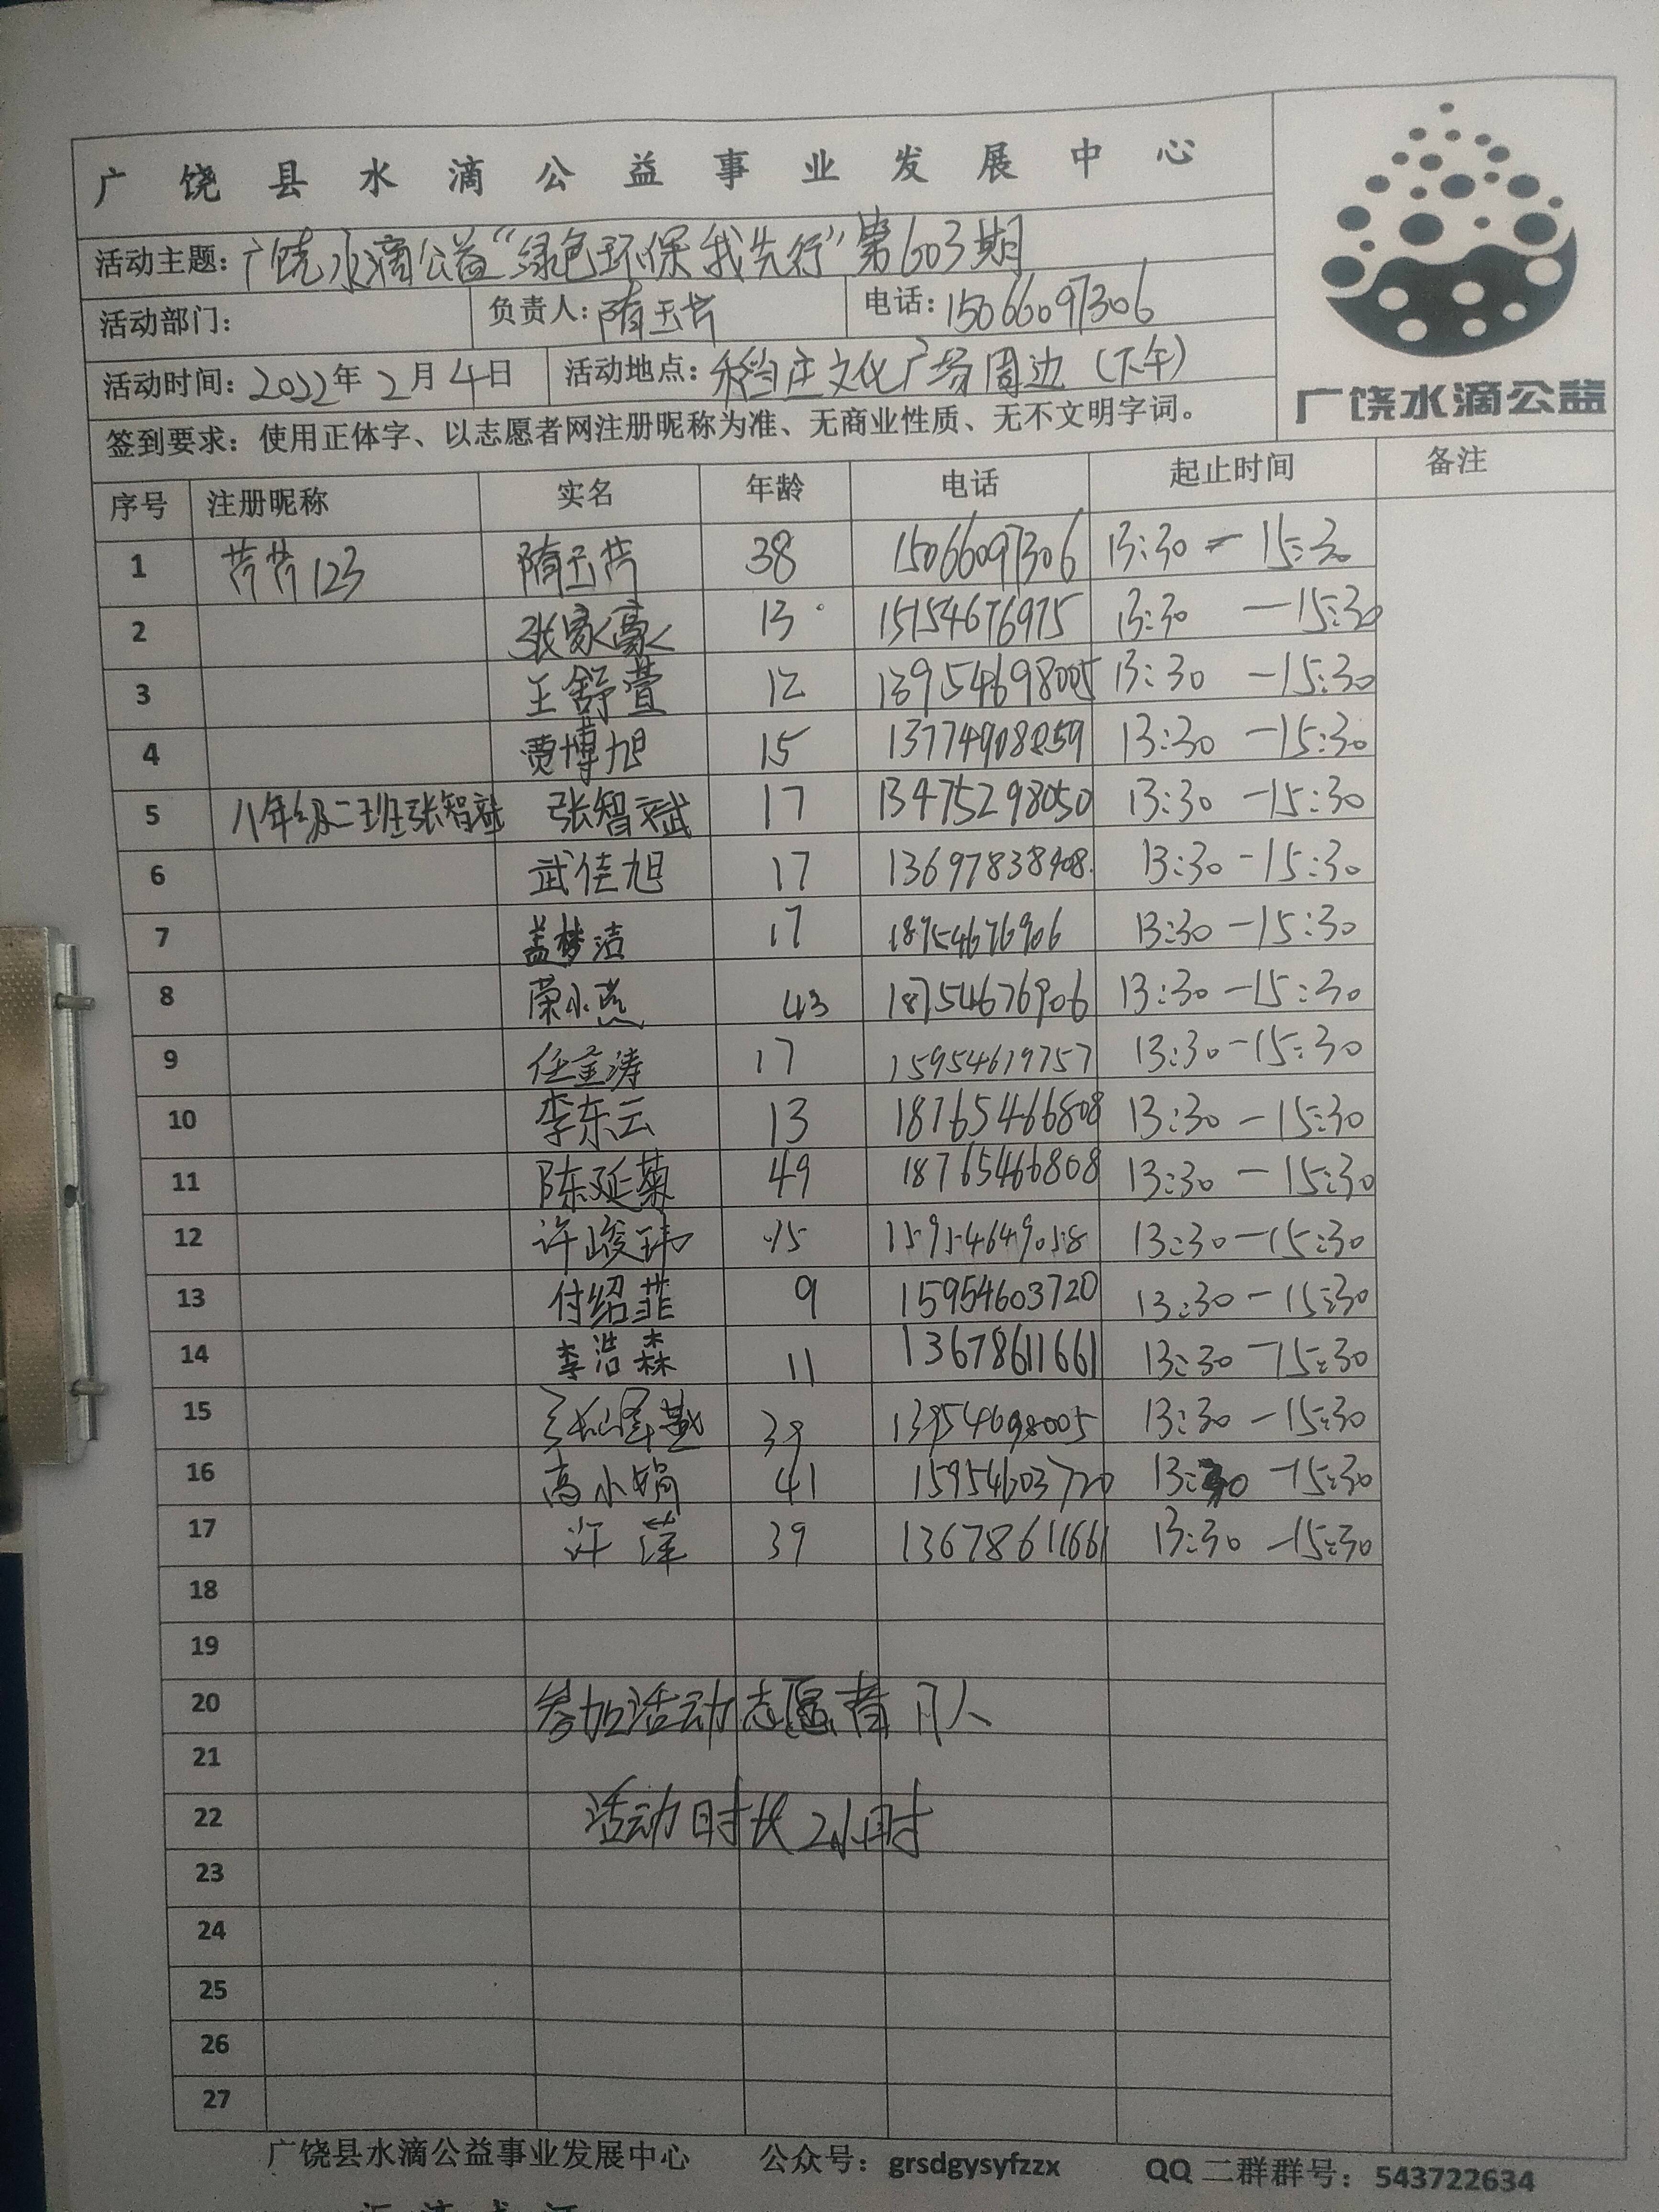 广饶县水滴公益事业发展中心
活动主题：广饶水滴公益“绿色环保我先行”第603期
活动部门： 负责人：隋玉芹 电话：15066097306
活动时间：2022年2月4日 活动地点：稻庄文化广场周边（下午）
广饶水滴公益
签到要求：使用正体字、以志愿者网注册昵称为准、无商业性质、无不文明字词。
序号 注册昵称 实名 年龄 电话 起止时间 备注
1 芹芹123 隋玉芹 38 15066097306 13:30-15:30
2 张家豪 13 15154676975 13:30-15:30
3 王舒萱 12 13954698005 13:30-15:30
4 贾博旭 15 13774908259 13:30-15:30
5 八年级二班张智斌 张智斌 17 13475298050 13:30-15:30
6 武佳旭 17 13697838408 13:30-15:30
7 盖梦洁 17 18754676906 13:30-15:30
8 荣小燕 43 18754676906 13:30-15:30
9 任金涛 17 15954619757 13:30-15:30
10 李东云 13 18765466808 13:30-15:30
11 陈延菊 49 18765466808 13:30-15:30
12 许峻玮 15 15954649058 13:30-15:30
13 付绍菲 9 15954603720 13:30-15:30
14 李浩森 11 13678611661 13:30-15:30
15 39 13954698005 13:30-15:30
16 高小娟 41 15954603720 13:30-15:30
17 许萍 39 13678611661 13:30-15:30
18
19
20 参加活动志愿者17人
21
22 活动时长2小时
23
24
25
26
27
广饶县水滴公益事业发展中心 公众号：grsdgysyfzzx QQ二群群号：543722634